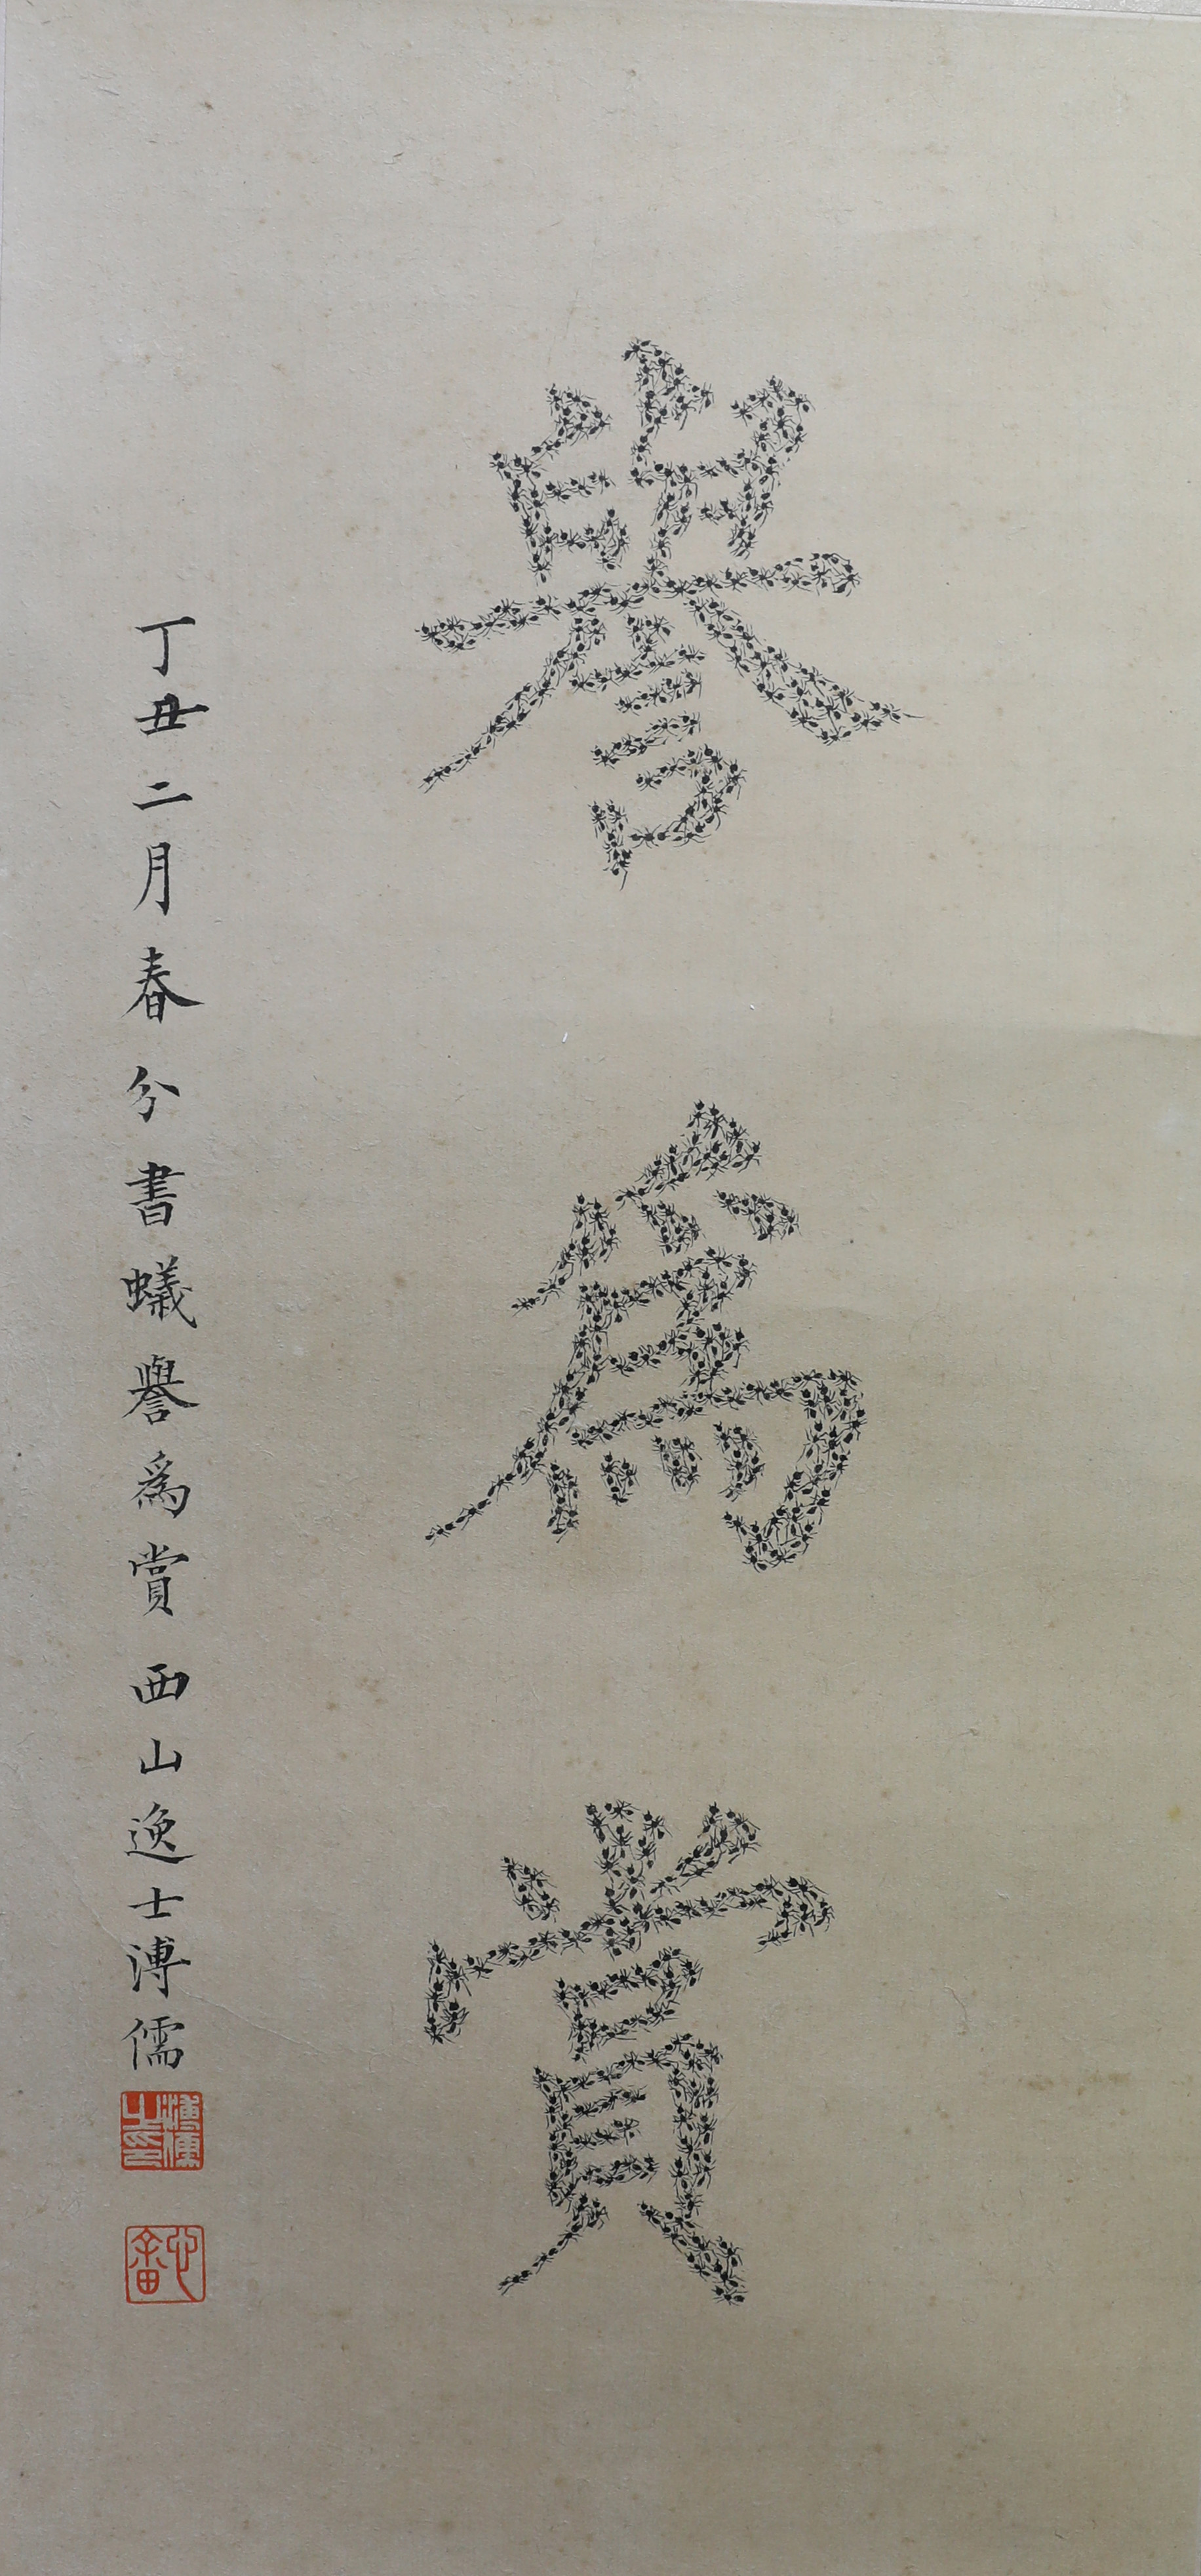 譽爲賞
丁丑二月春分書蟻譽爲賞西山逸士溥儒
溥儒之印
心畬